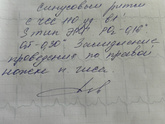 Синусовый ритм
с ЧСС 110 уд в 1'
3 тип ЭКГ PQ-0,16"
QRS-0,90" Замедление
проведения по правой
ножке п Гиса